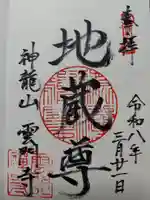 奉拝
令和八年
三月廿一日
地蔵尊
神龍山 雲洞寺